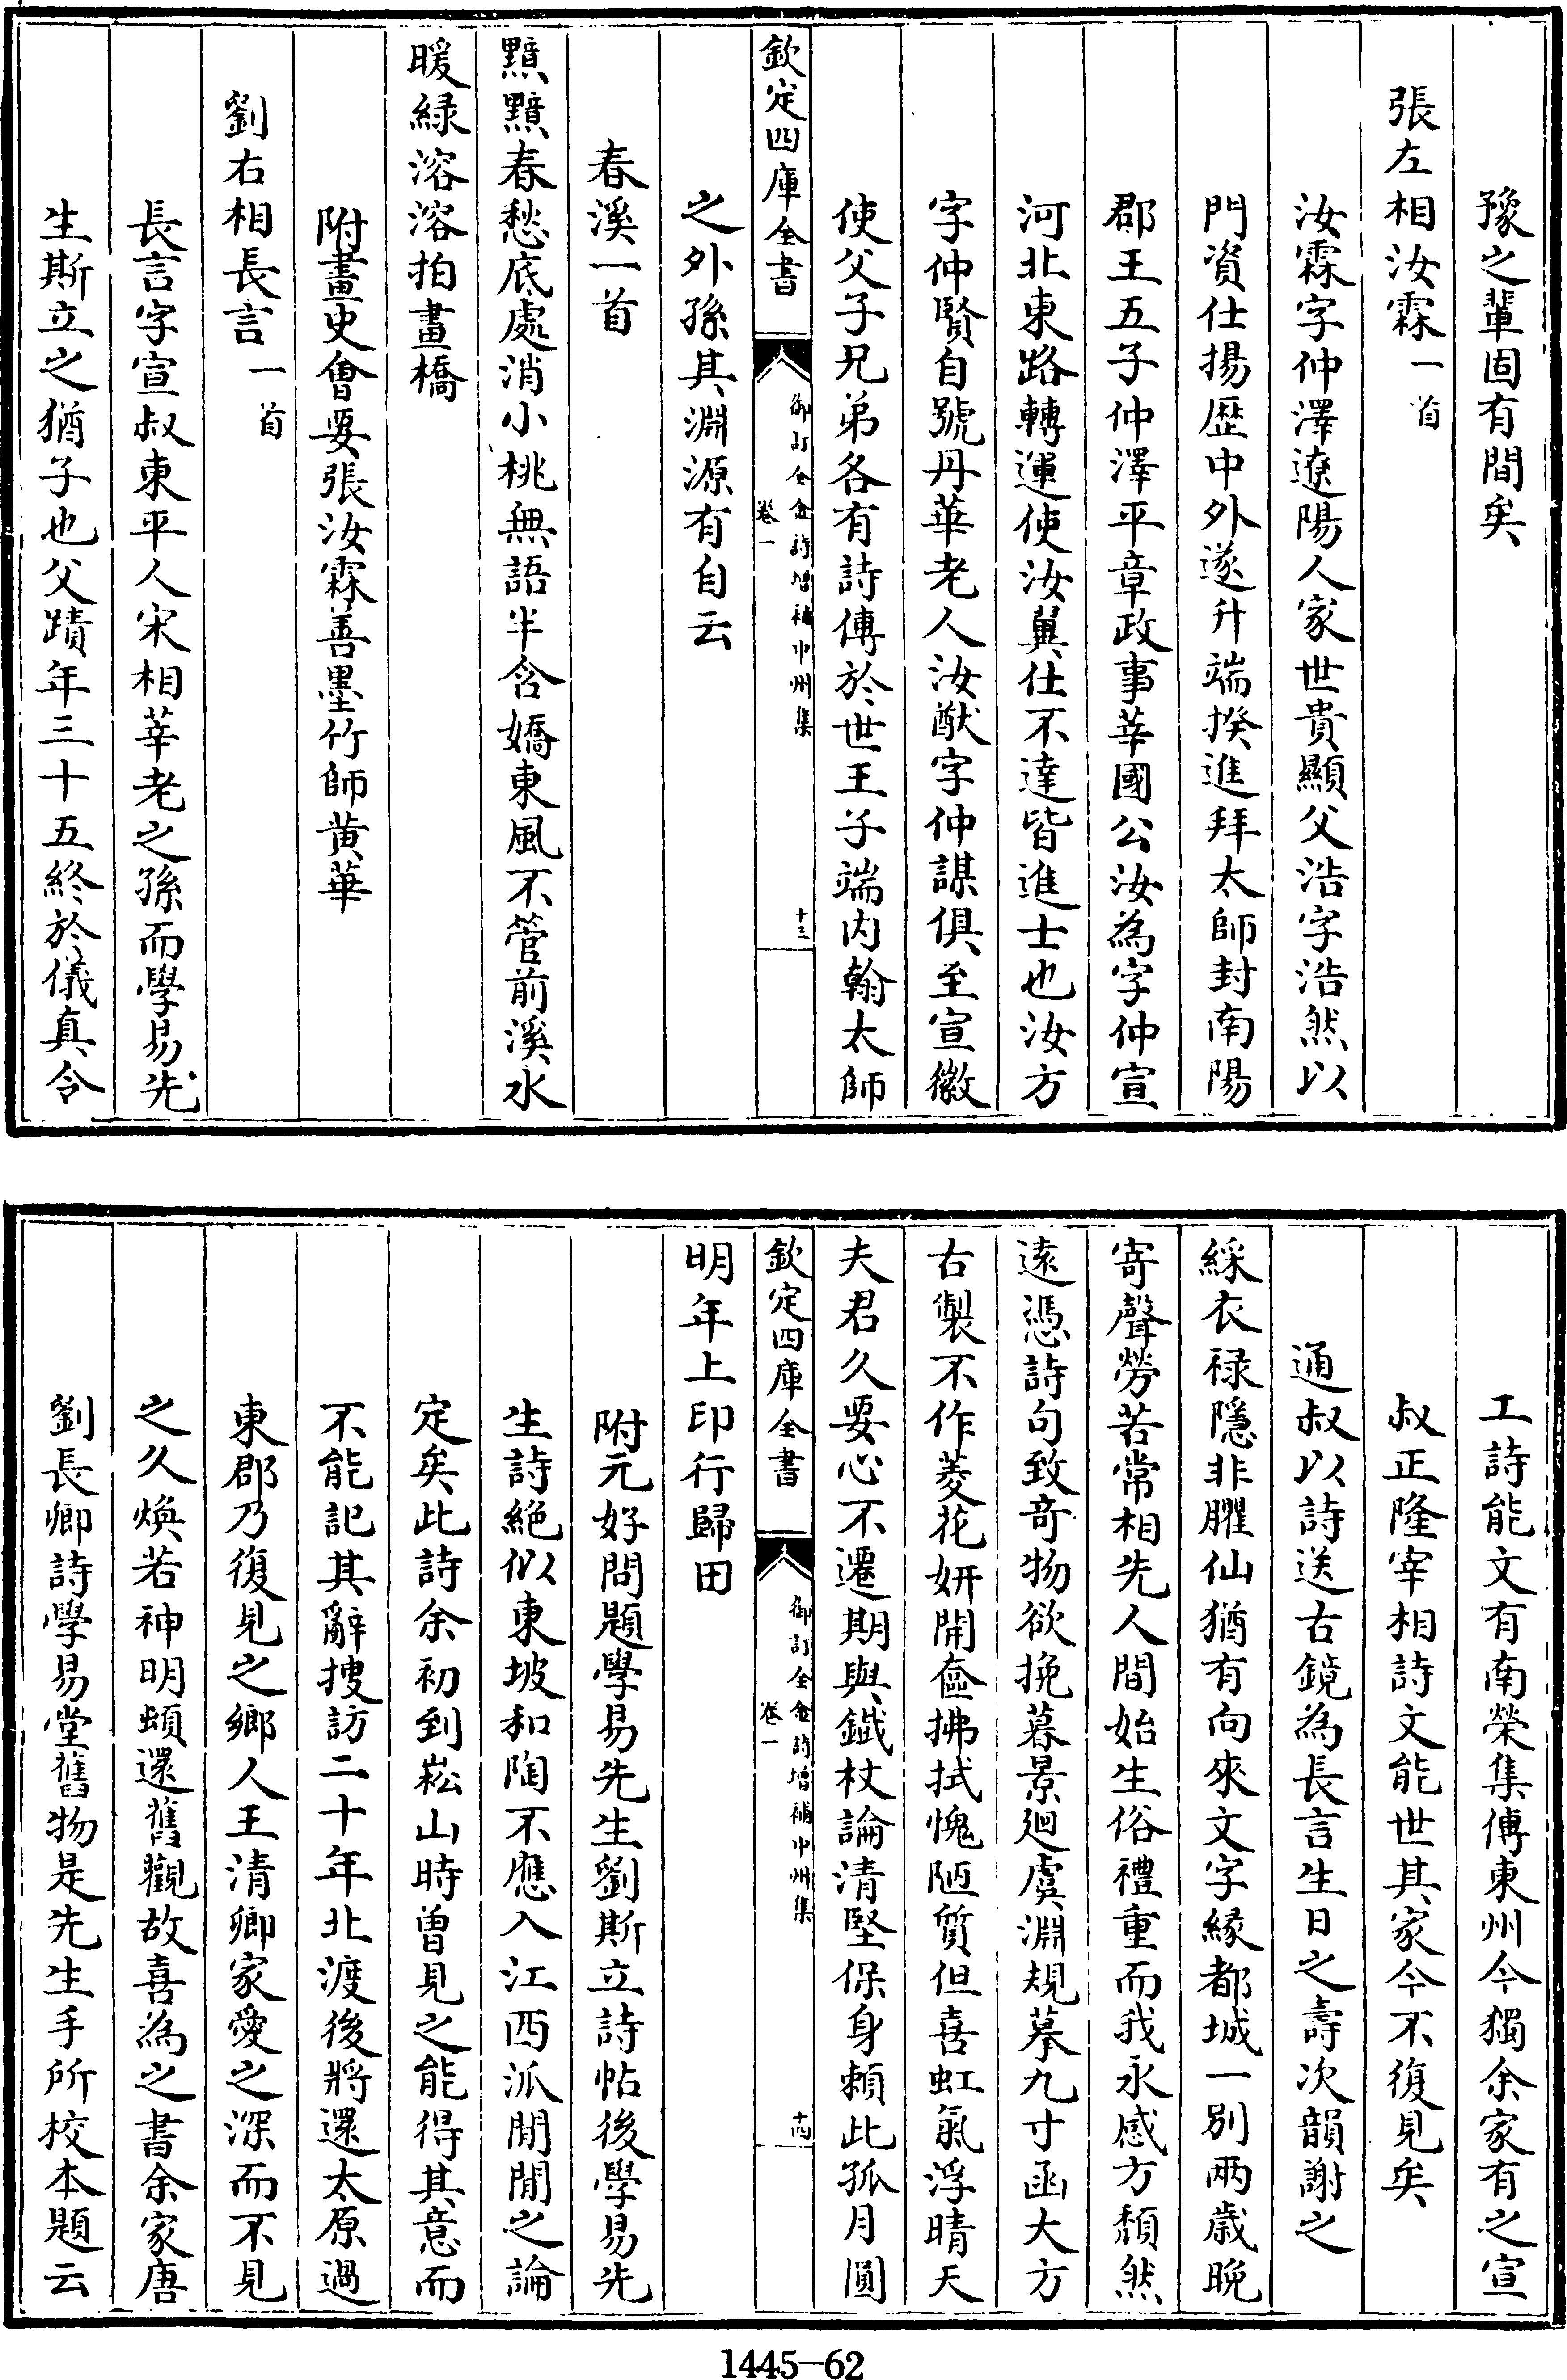 豫之輩固有間矣
張左相汝霖一首
汝霖字仲澤遼陽人家世貴顯父浩字浩然以
門資仕揚歴中外遂升端揆進拜太師封南陽
郡王五子仲澤平章政事莘國公汝為字仲宣
河北東路轉運使汝翼仕不達皆進士也汝方
字仲賢自號丹華老人汝猷字仲謀俱至宣徽
使父子兄弟各有詩傳於世王子端内翰太師
欽定四庫全書
御訂全金詩増補中州集
卷一
十三
之外孫其淵源有自云
春溪一首
黯黯春愁底處消小桃無語半含嬌東風不管前溪水
暖緑溶溶拍畫橋
附畫史㑹要張汝霖善墨竹師黄華
劉右相長言一首
長言字宣叔東平人宋相莘老之孫而學易先
生斯立之猶子也父蹟年三十五終於儀真令
工詩能文有南榮集傳東州今獨余家有之宣
叔正隆宰相詩文能世其家今不復見矣
通叔以詩送右鏡為長言生日之壽次韻謝之
綵衣禄隱非臞仙猶有向來文字縁都城一別兩歳晚
寄聲勞若常相先人間始生俗禮重而我永感方頽然
逺憑詩句致竒物欲挽暮景廻虞淵規摹九寸函大方
右製不作菱花妍開奩拂拭愧陋質但喜虹氣浮晴天
夫君久要心不遷期與鐡杖論清堅保身頼此孤月圓
欽定四庫全書
御訂全金詩増補中州集
卷一
十四
明年上印行歸田
附元好問題學易先生劉斯立詩帖後學易先
生詩絶似東坡和陶不應入江西派閒閒之論
定矣此詩余初到崧山時曽見之能得其意而
不能記其辭捜訪二十年北渡後將還太原過
東郡乃復見之鄉人王清卿家愛之深而不見
之久煥若神明頓還舊觀故喜為之書余家唐
劉長卿詩學易堂舊物是先生手所校本題云
1445-62